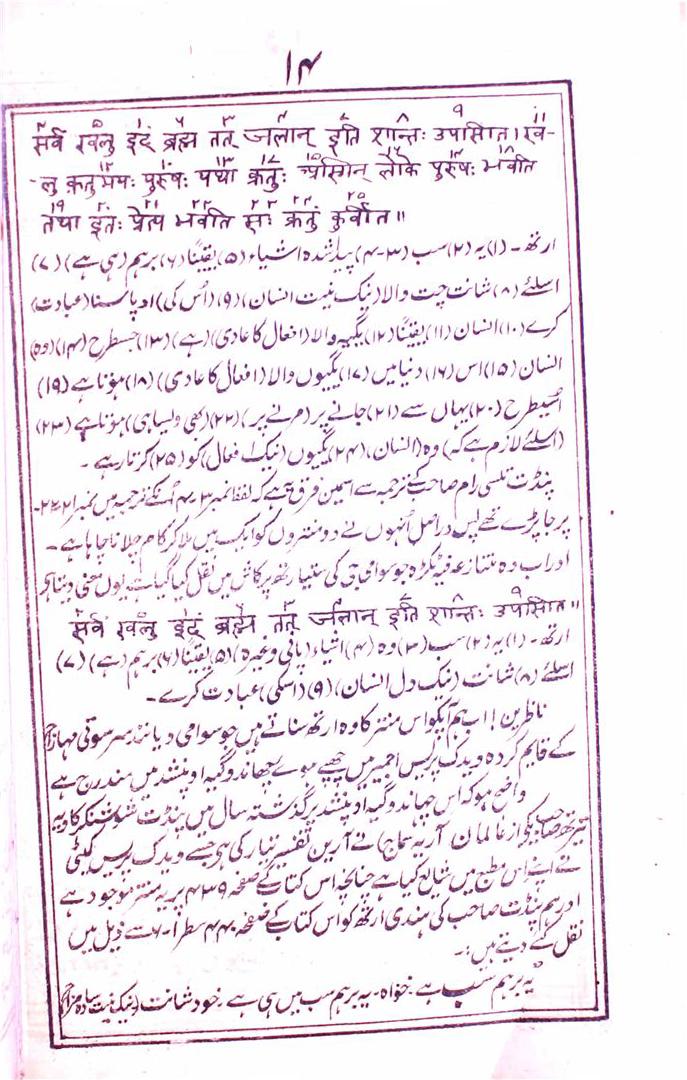 ۱۴
सर्व खलु इदं ब्रह्म तत् जलान् इति शान्तिः उपासित। ख-
लु क्रतुमयः पुरुषः यथा क्रतुः अस्मिन् लोके पुरुषः भवति
तथा इतः प्रेत्य भवति सः क्रतुं कुर्वीत॥
ارتھ۔ (۱) یہ (۲) سب (۳-۴) پیدا شدہ اشیاء (۵) یقیناً (۶) برہم (ہی ہے) (۷)
اسلئے (۸) شانت چت والا (نیک نیت انسان) (۹) (اُس کی) اوپاسنا (عبادت)
کرے (۱۰) انسان (۱۱) یقیناً (۱۲) یگیہ والا (افعال کا عادی) (ہے) (۱۳) جسطرح (۱۴) (وہ)
انسان (۱۵) اس (۱۶) دنیا میں (۱۷) یگیوں والا (افعال کا عادی) (۱۸) ہوتا ہے (۱۹)
اُسیطرح (۲۰) یہاں سے (۲۱) جانے پر (مرنے پر) (۲۲) (بھی ویسا ہی) ہوتا ہے (۲۳)
(اسلئے لازم ہے کہ) وہ (انسان) (۲۴) یگیوں (نیک افعال) کو (۲۵) کرتا رہے ۔
پنڈت تلسی رام صاحب کے ترجمہ سے اسمیں فرق یہ ہے کہ لفظ نمبر ۳۔۴ اُنکے ترجمہ میں نمبر
پر جا پڑے تھے پس دراصل اُنہوں نے دو منتروں کو ایک میں ملا کر کام چلانا چاہا ہے ۔
اور اب وہ متنازعہ فیہ ٹکڑہ جو سوامی جی کی ستیارتھ پرکاش میں نقل کیا گیا ہے یوں معنی دیتا ہے
सर्व खलु इदं ब्रह्म तत् जलान् इति शान्तिः उपासित॥
ارتھ۔ (۱) یہ (۲) سب (۳) وہ (۴) اشیاء (پانی وغیرہ) (۵) یقیناً (۶) برہم (ہے) (۷)
اسلئے (۸) شانت (نیک دل انسان) (۹) (اسکی) عبادت کرے ۔
ناظرین! اب ہم آپکو اس منتر کا وہ ارتھ سناتے ہیں جو سوامی دیانند سرسوتی مہاراج
کے قایم کردہ ویدک پریس اجمیر میں چھپے ہوے چھاندوگیہ اوپنشد میں مندرج ہے
واضح ہو کہ اس چھاندوگیہ اوپنشد پر گذشتہ سال میں پنڈت شوشنکر کاویہ
تیرتھ صاحب (یکے از عالمان آریہ سماج) نے آرین تفسیر تیار کی ہے جسے ویدک پریس کمیٹی
نے اپنے اس مطبع میں شایع کیا ہے چنانچہ اس کتاب کے صفحہ ۴۳۹ پر یہ منتر موجود ہے
اور ہم پنڈت صاحب کی ہندی ارتھ کو اس کتاب کے صفحہ ۴۴۰ سطر ۱۔۶ سے ذیل میں
نقل کئے دیتے ہیں:۔
یہ برہم سب ہے خواہ۔ یہ برہم سب میں ہی ہے ۔ خود شانت (نیک نیت سادہ مزاج)